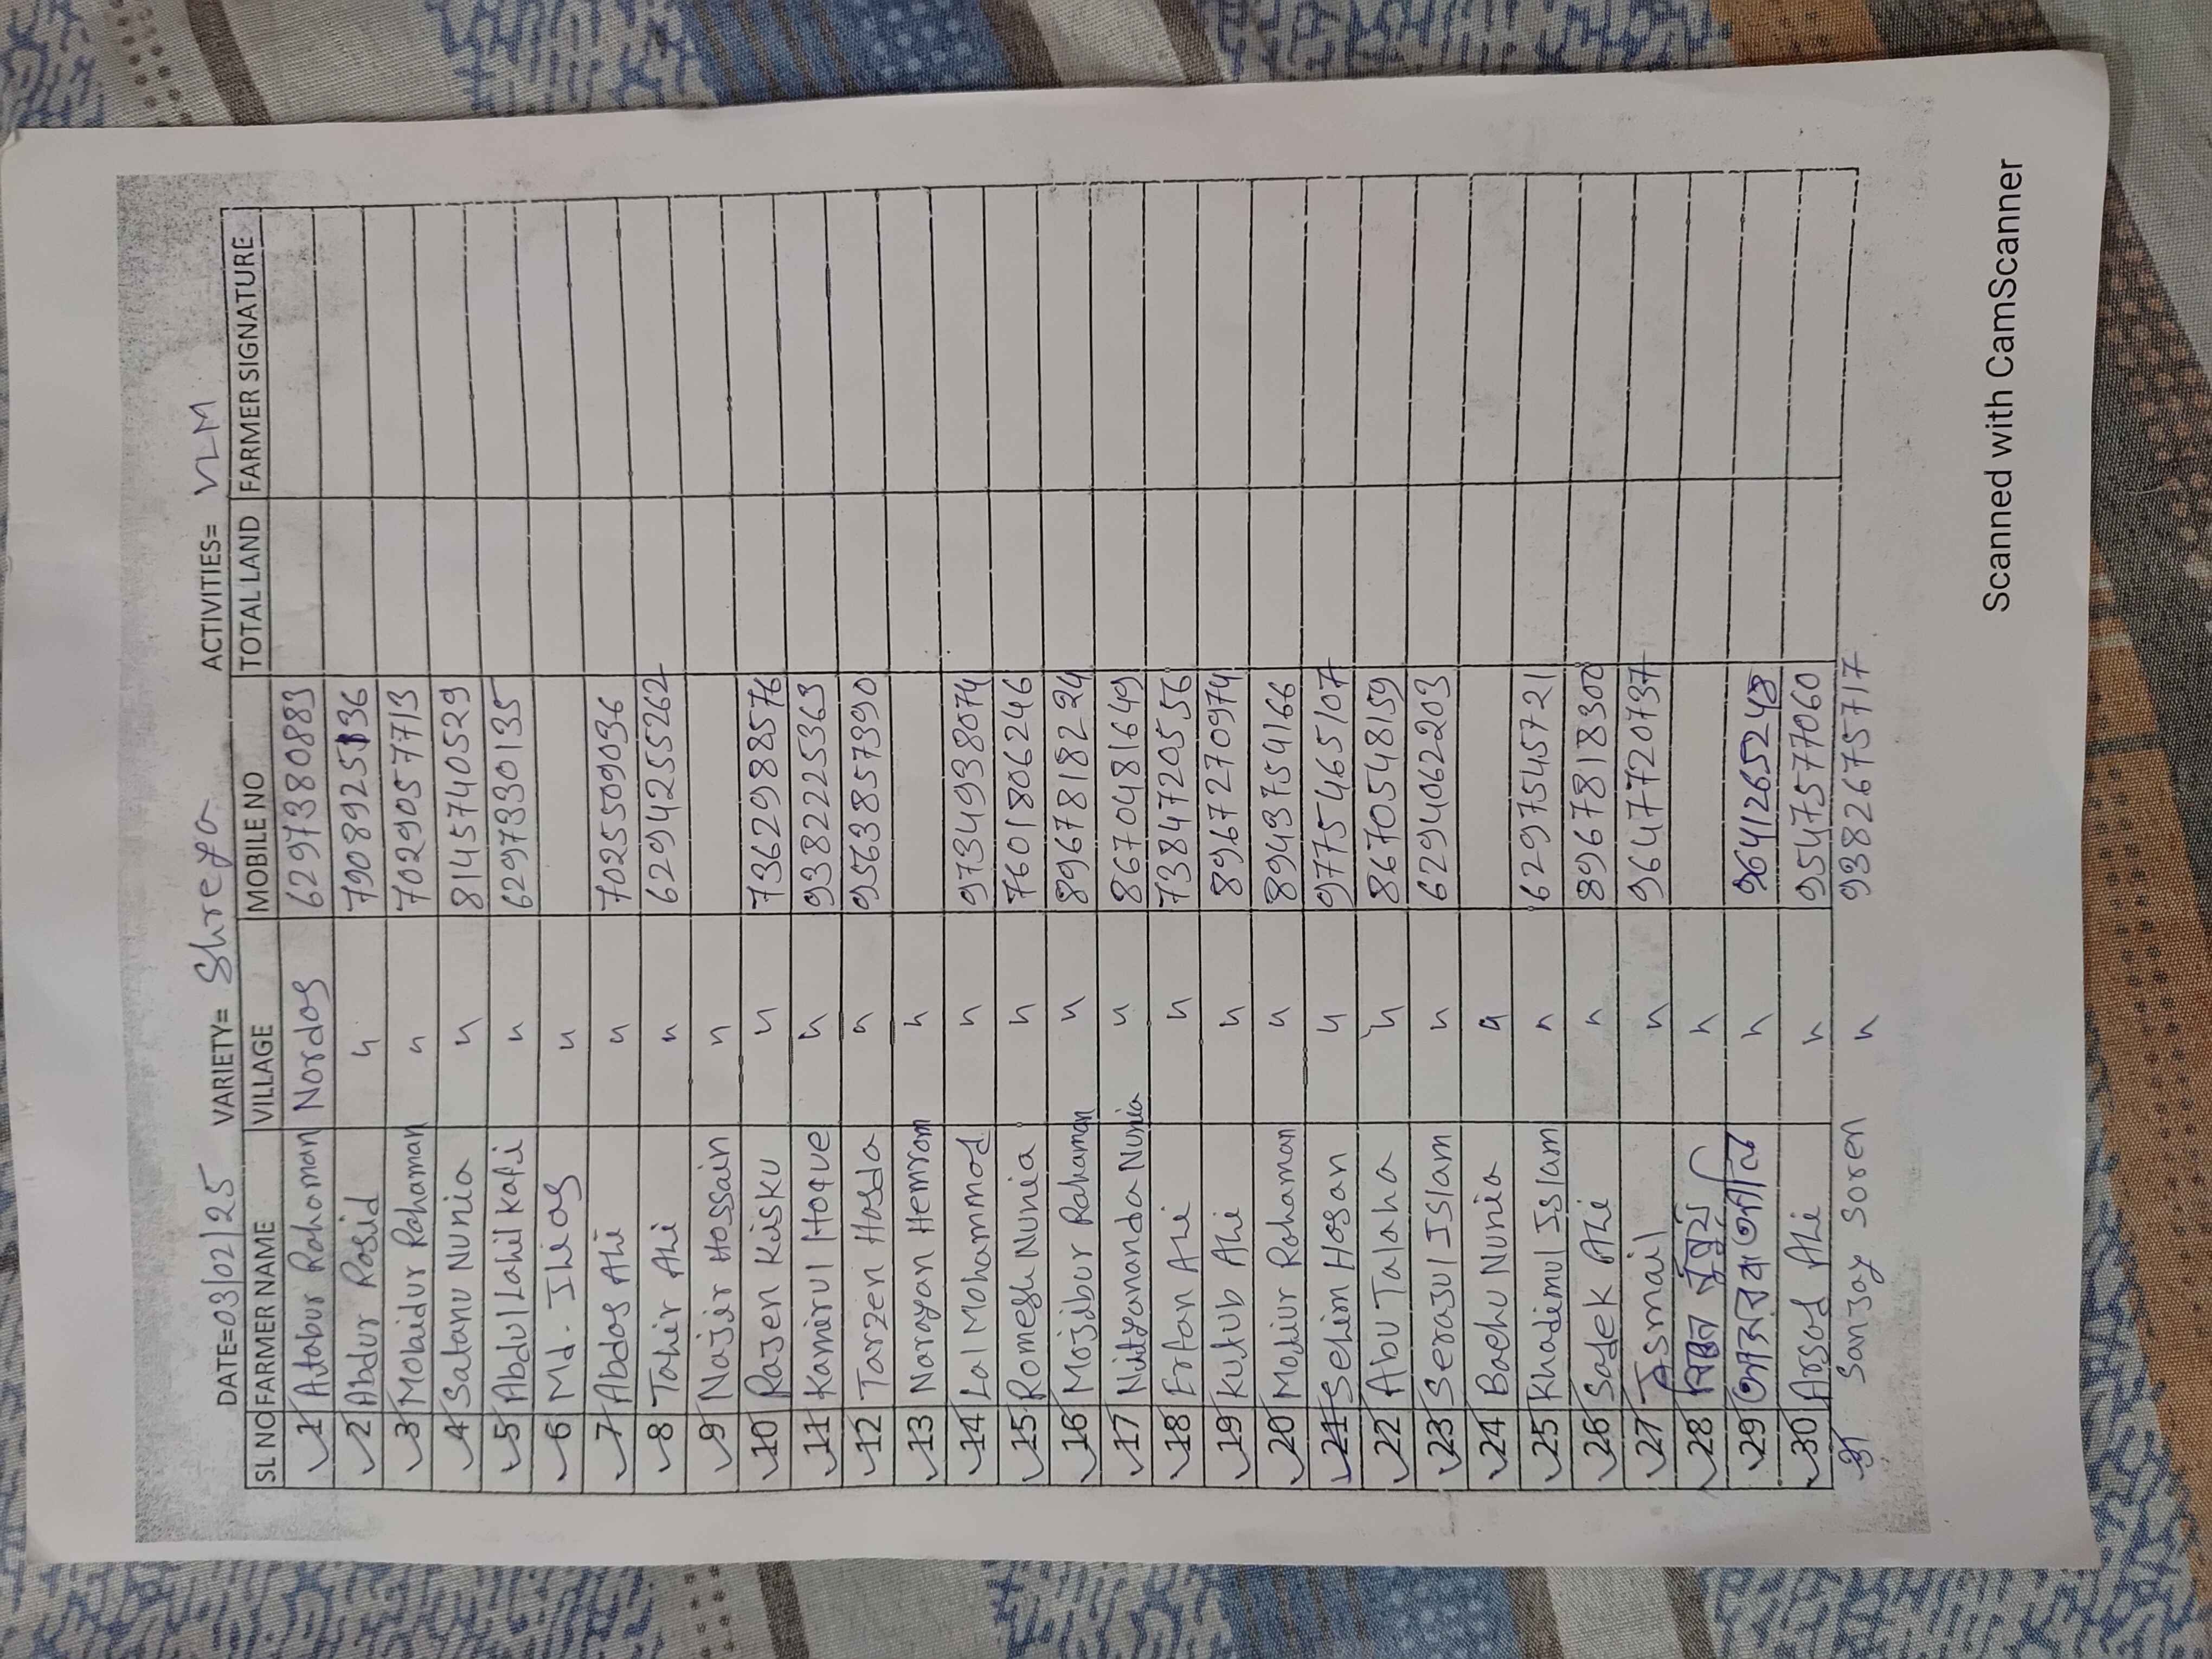 DATE=03/02/25 VARIETY= Shreya ACTIVITIES= VLM
SL NO FARMER NAME VILLAGE MOBILE NO TOTAL LAND FARMER SIGNATURE
1 Atabur Rahaman Nordos 6297380883
2 Abdur Rosid " 7908925136
3 Mobaidur Rahaman " 7029057713
4 Satanu Nunia " 8145740529
5 Abdul Lahil Kafi " 6297330135
6 Md. Ilias "
7 Abdos Ali " 7025509036
8 Tahir Ali " 6294255262
9 Najir Hossain "
10 Rajen Kisku " 7362988576
11 Kamirul Hoque " 9382225363
12 Tarzen Hasda " 9563857390
13 Narayan Hemram "
14 Lal Mohammad " 9734938074
15 Romesh Nunia " 7601806246
16 Mojibur Rahaman " 8967818224
17 Nityananda Nunia " 8670481649
18 Erfan Ali " 7384720556
19 Kutub Ali " 8967270974
20 Mohiur Rahaman " 8943754166
21 Selim Hosan " 9775465107
22 Abu Talaha " 8670548159
23 Serajul Islam " 6294062203
24 Bachu Nunia "
25 Khadimul Islam " 6297545721
26 Sadek Ali " 8967818300
27 Ismail " 9647720737
28 "
29 " 9641265248
30 Arsad Ali " 9547577060
31. Sanjay Soren " 9382675717
Scanned with CamScanner